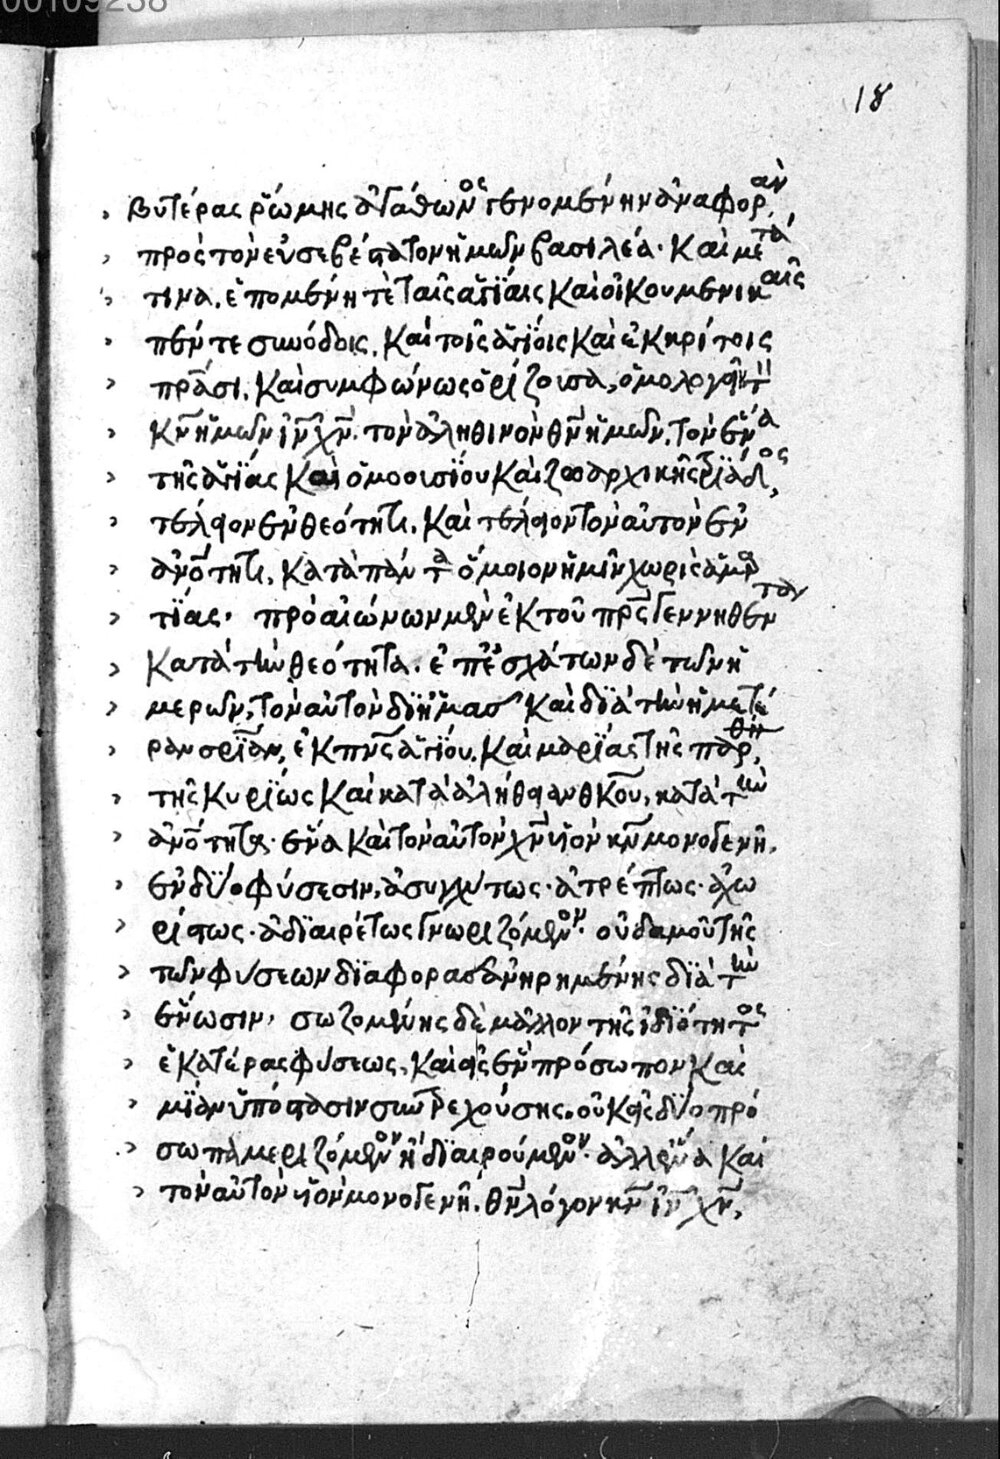 00109238
18
βυτέρας ῥώμης ἀγάθωνος γενομένην ἀναφορὰν
πρὸς τὸν εὐσεβέστατον ἡμῶν βασιλέα· καὶ μετά
τινα. ἑπομένη τὲ ταῖς ἁγίαις καὶ οἰκουμενικαῖς
πέντε συνόδοις, καὶ τοῖς ἁγίοις καὶ ἐκκρίτοις
πρᾶσι, καὶ συμφώνως ὁρίζουσα, ὁμολογεῖν τὸν
κν̅ ἡμῶν ιν̅ χν̅. τὸν ἀληθινὸν θν̅ ἡμῶν, τὸν ἕνα
τῆς ἁγίας καὶ ὁμοουσίου καὶ ζωαρχικῆς τριάδος,
τέλειον ἐν θεότητι, καὶ τέλειον τὸν αὐτὸν ἐν
ἀνο̅τητι, κατὰ πάντα ὅμοιον ἡμῖν χωρὶς ἁμαρ
τίας· πρὸ αἰώνων μὲν ἐκ τοῦ πρ̅ς γεννηθέντα
κατὰ τὴν θεότητα. ἐπ' ἐσχάτων δὲ τῶν ἡ
μερῶν, τὸν αὐτὸν δι' ἡμᾶς καὶ διὰ τὴν ἡμετέ
ραν σρίαν, ἐκ πν̅ς ἁγίου, καὶ μαρίας τῆς παρθέν,
τῆς κυρίως καὶ κατὰ ἀλήθειαν θκου, κατὰ τὴν
ἀνο̅τητα· ἕνα καὶ τὸν αὐτὸν χν̅ υἱὸν κν̅ μονογενῆ,
ἐν δύο φύσεσιν, ἀσυγχύτως· ἀτρέπτως· ἀχω
ρίστως· ἀδιαιρέτως γνωριζόμενον· οὐδαμοῦ τῆς
τῶν φύσεων διαφορᾶς ἀνῃρημένης διὰ τὴν
ἕνωσιν, σωζομένης δὲ μᾶλλον τῆς ἰδιότητος
ἑκατέρας φύσεως, καὶ εἰς ἓν πρόσωπον καὶ
μίαν ὑπόστασιν συντρεχούσης. οὐκ εἰς δύο πρό
σωπα μεριζόμενον ἢ διαιρούμενον· ἀλλ' ἕνα καὶ
τὸν αὐτὸν υἱὸν μονογενῆ. θν̅ λόγον κν̅ ιν̅ χν̅,